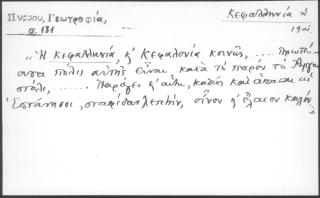 Πύρρου, Γεωγραφία, Κεφαλληνία ἡ
σ. 181
„Ἡ Κεφαλληνία, ἢ Κεφαλονία κοινῶς, ..... πρωτεύ
ουσα πόλις αὐτῆς εἶναι κατὰ τὸ παρὸν τὸ Ἀργο
στόλι, ..... Παράγει ἡ αὐτή, καθὼς καὶ ἅπασαι αἱ
Ἑπτάνησοι, σταφίδα λεπτήν, οἶνον κ' ἔλαιον καλόν